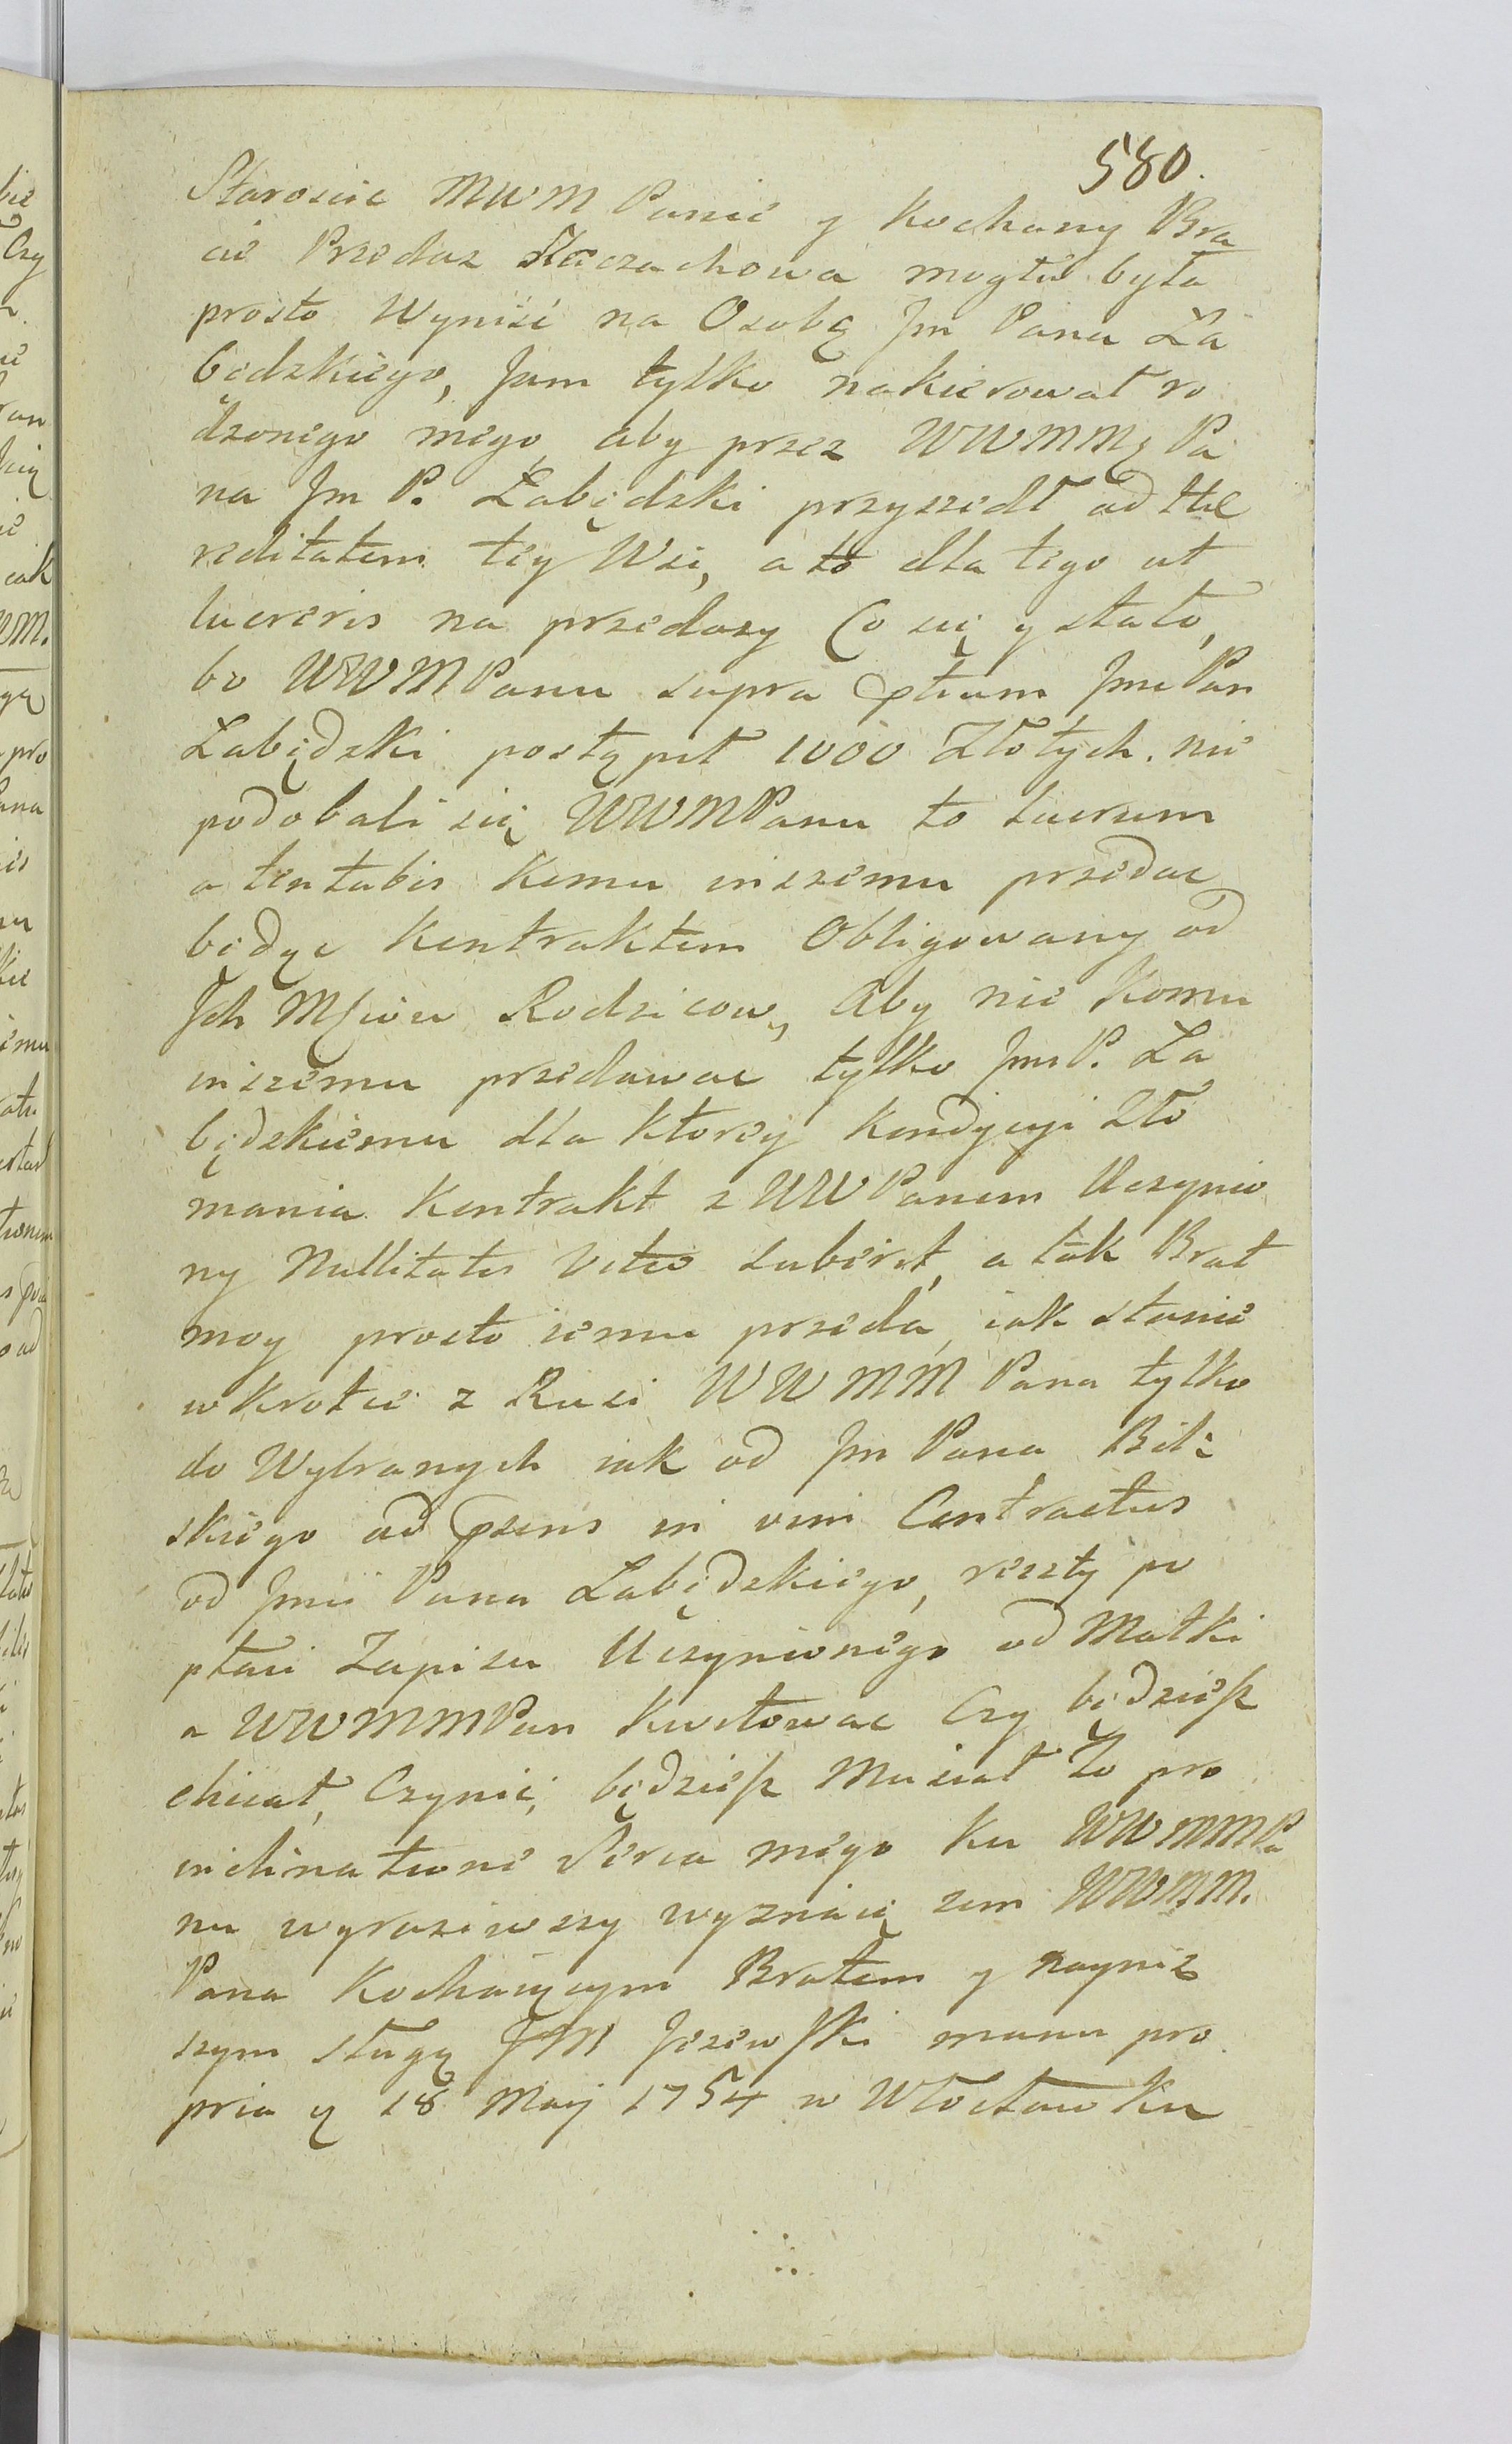 580.
Staroscie MWM Panie y Kochany Bra
cie Przedaz Kaczachowa mogła była
prosto Wyniść na Osobę Jm Pana Ła
będzkiego, Jam tylko nakierował ro
dzonego mego, aby przez WWMMg Pa
na Jm P. Łabędzki przyszedł ad Hae
reditatem tey Wsi, a to dla tego ut
lucreris na przedazy Co się y stało,
bo WWMPanu supra ptium Jme Pan
Łabędzki postąpił 1000 Złotych. nie
podobali się WWMPanu to lucrum
a tentabis komu inszemu przedac
będąc kontraktem Obligowany od
Ich Mściow Rodzicow, Aby nie komu
inszemu przedawac tylko Jm P. Ła
będzkiemu dla ktorey kondycyi zło
mania Kontrakt z WWPanem Uczynio
ny Nullitatis Vitio suberit, a tak Brat
moy prosto iemu przeda, iak stanie
wkrotce z Rusi WWMM Pana tylko
do Wybranych iak od Jm Pana Bili
skiego ad psens in vim Contractus
od Jmci Pana Łabędzkiego, reszty po
płaci Zapisu Uczynionego od Matki
a WWMMPan kwitowac Czy będziesz
chciał, Czynić, będziesz Musiał To pro
inclinatione Serca mego ku WWMMPa
nu wyraziwszy wyznaię zem WWMM.
Pana Kochaiącym Bratem y nayniz
szym sługą JM Jezewski manu pro
pria g 18 Maij 1754 w Włocławku